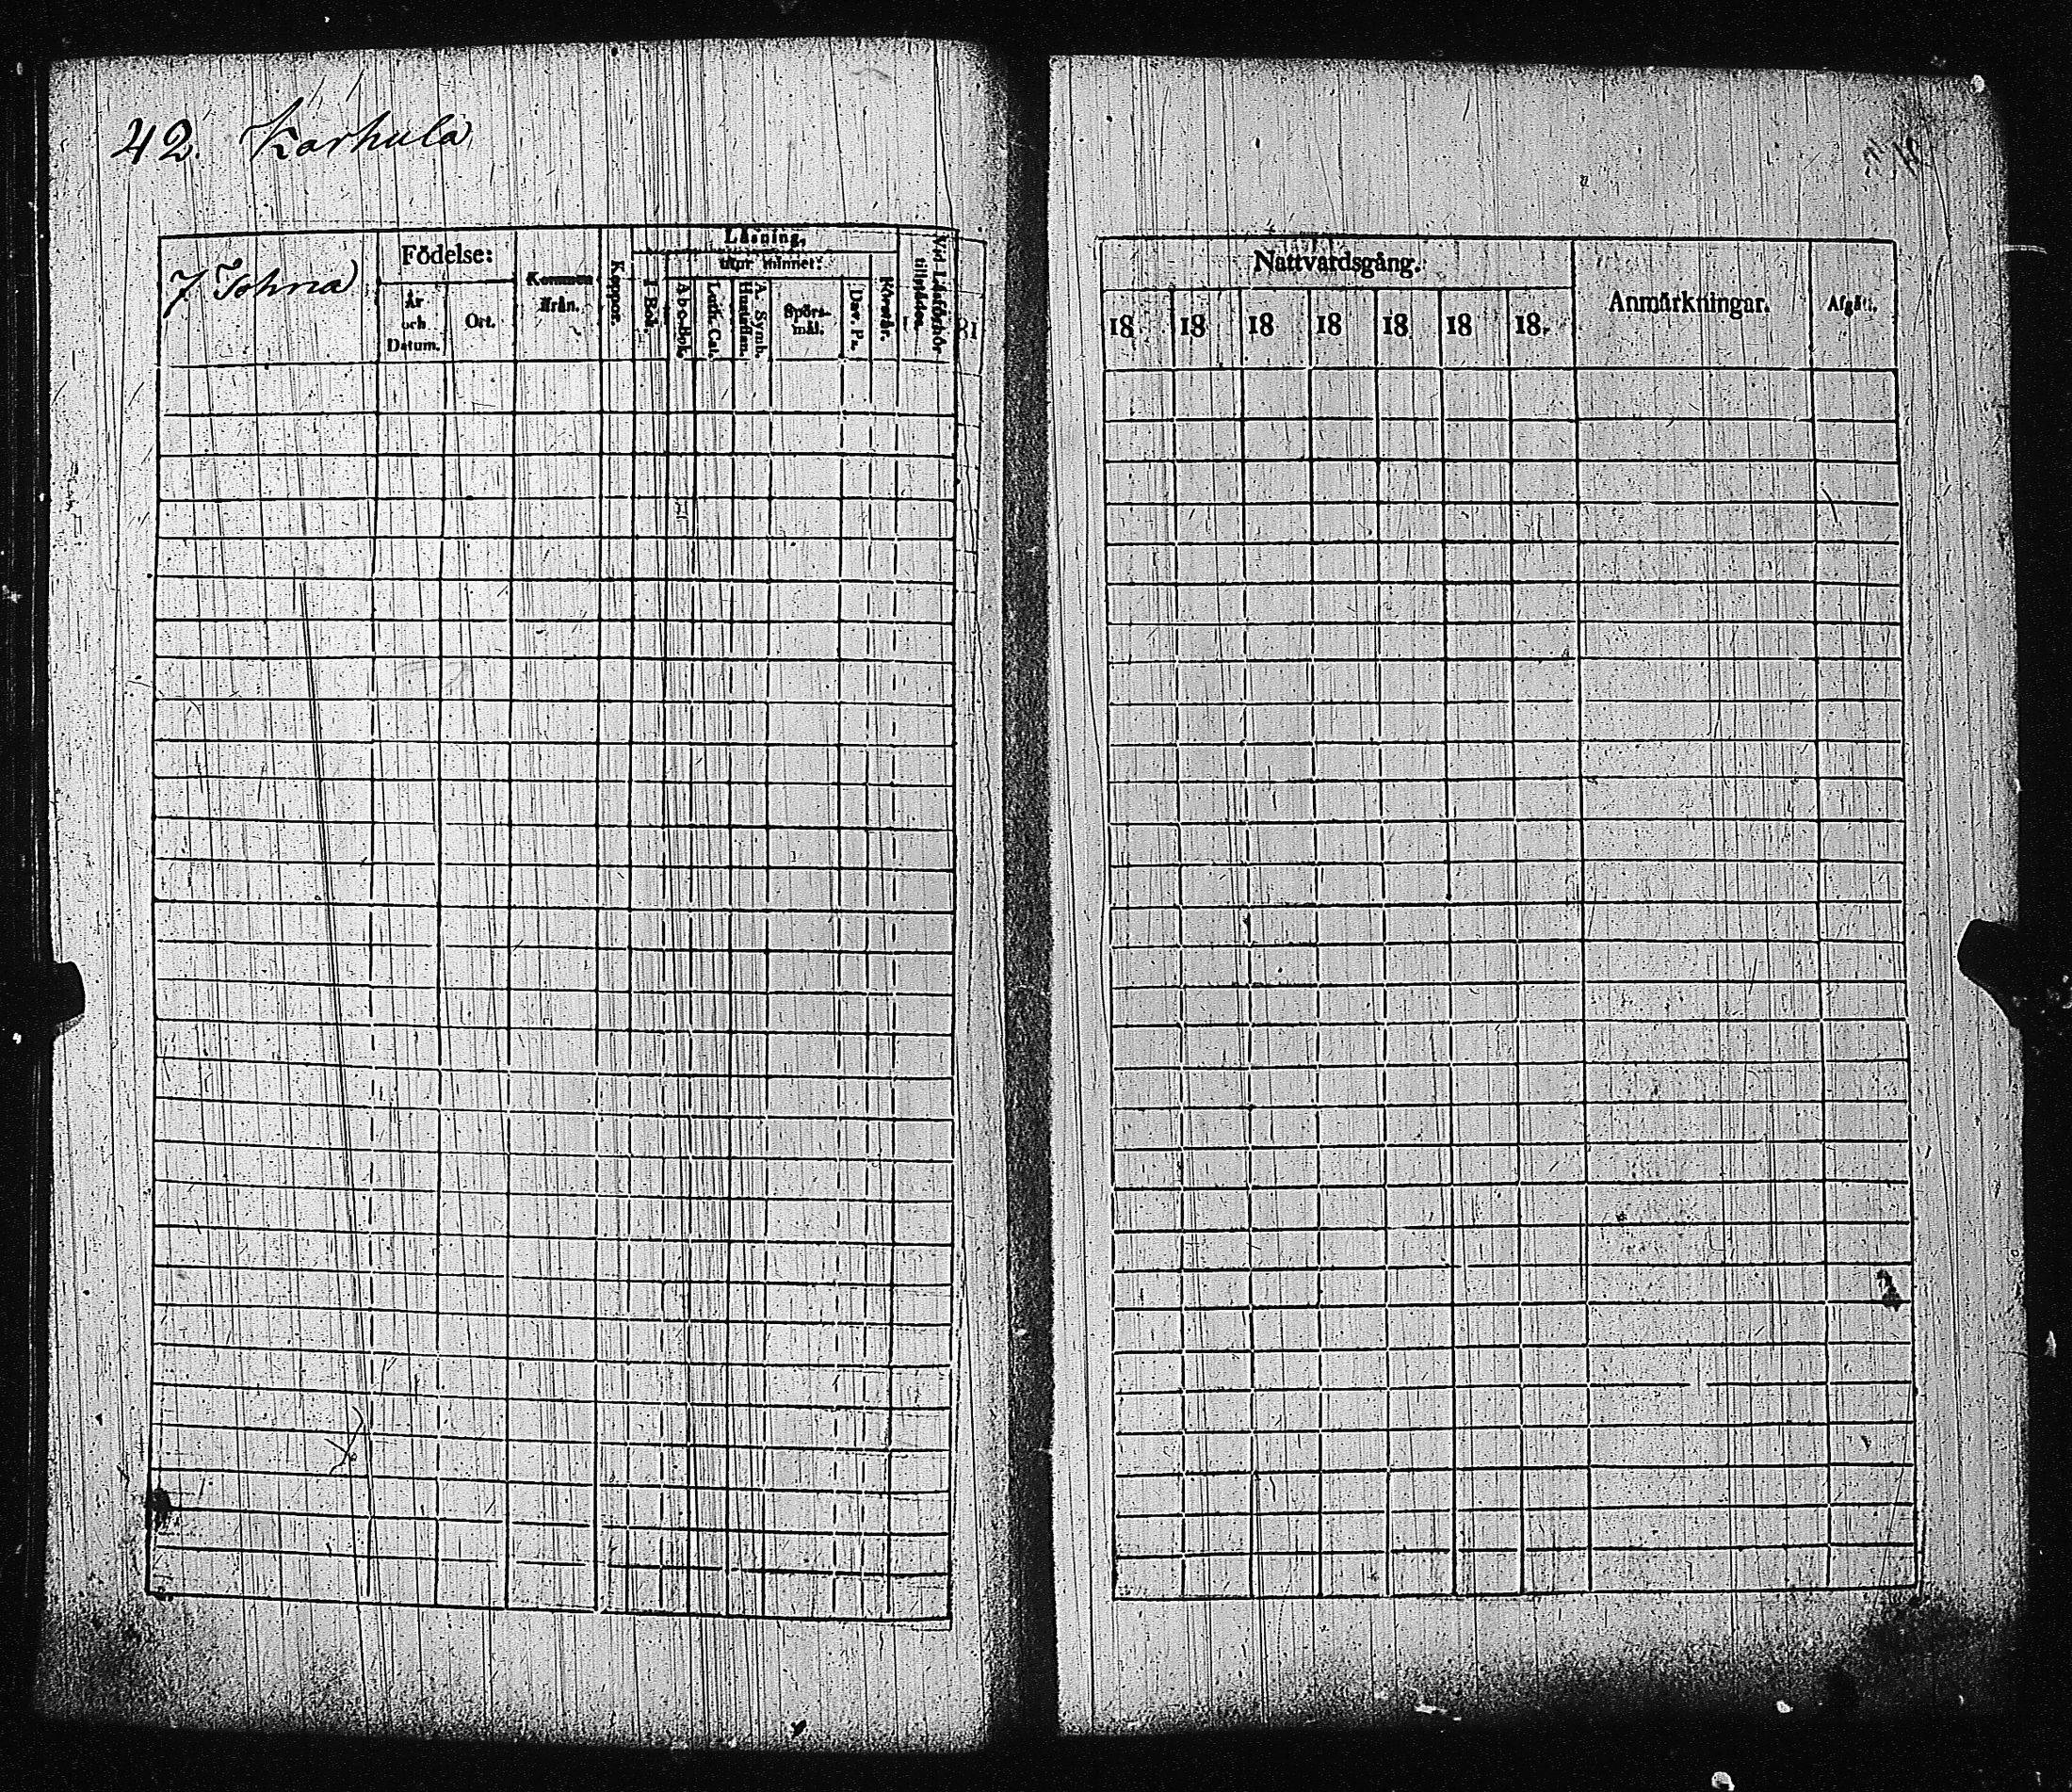 42. Karhula
7 Tohna
Födelse:
År och Datum.
Ort.
Kommen ifrån.
Koppor.
Läsning,
I Bok.
utur minnet:
A b c-Bok.
Luth. Cat.
A. Symb. Hustaflan.
Spörsmål.
Dav. Ps.
Förstår.
Vid Läsförhör tillstädes.
Nattvardsgång.
18 18 18 18 18 18 18
Anmärkningar.
Afgått.